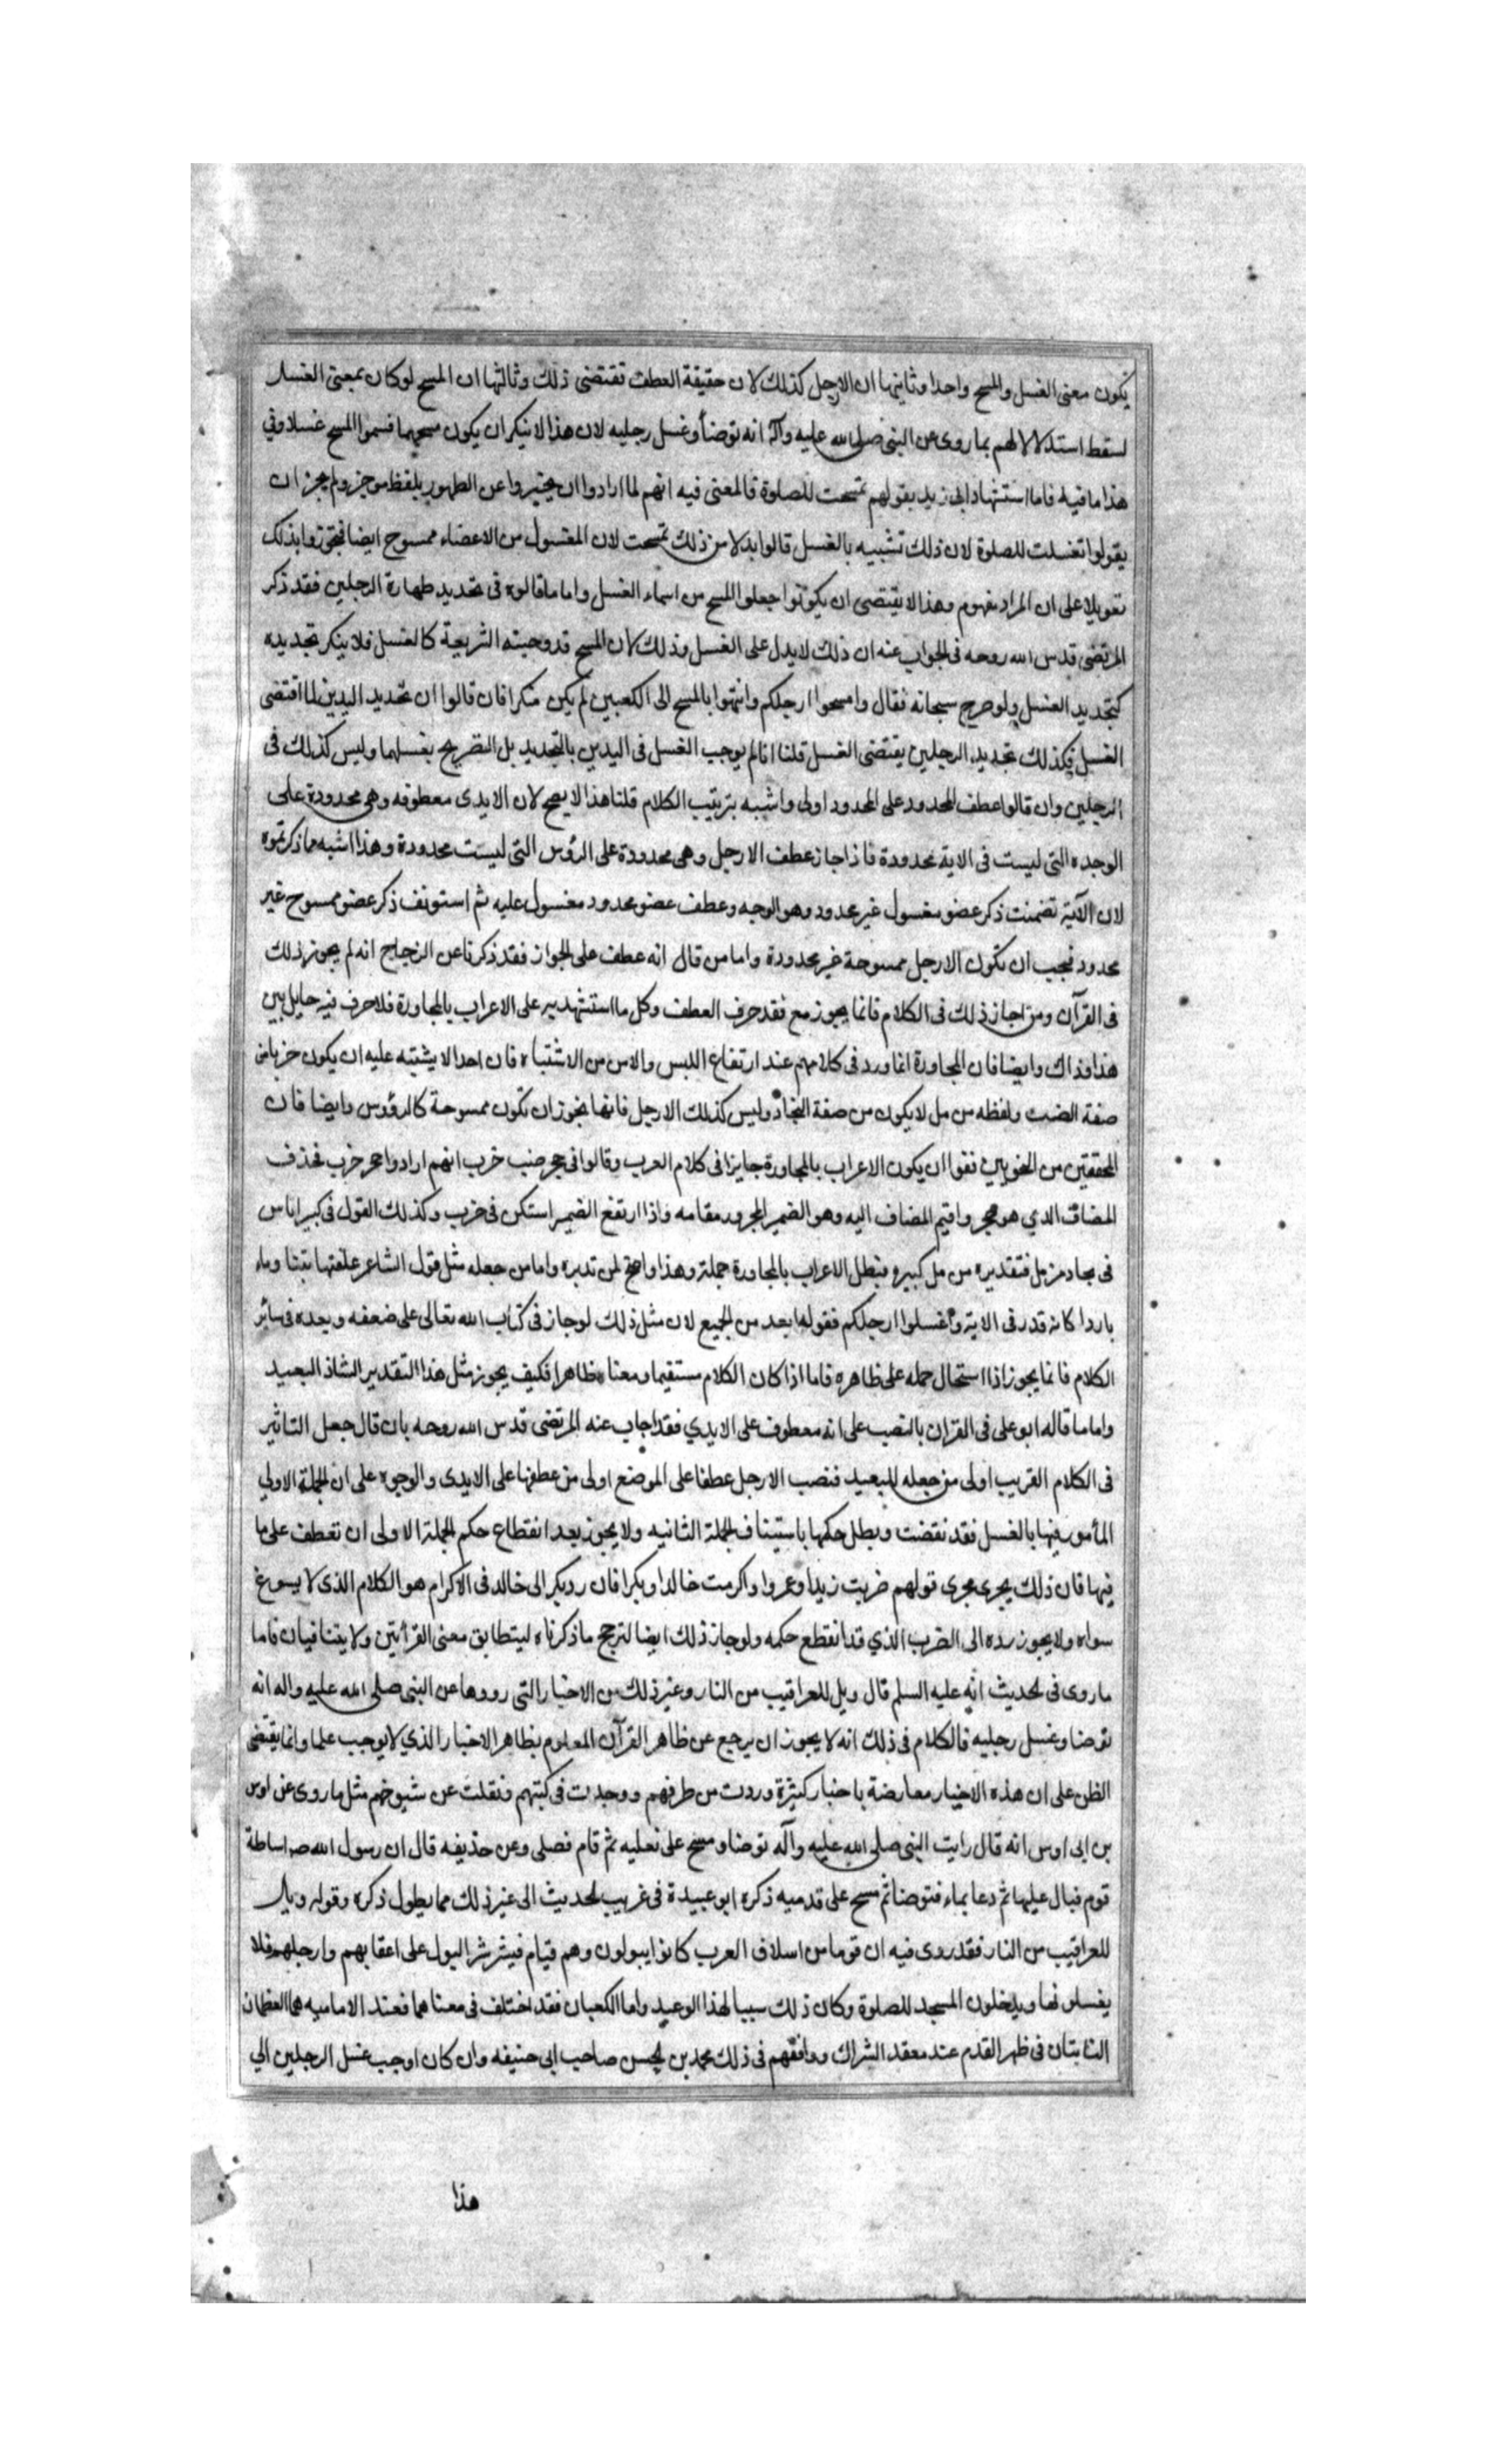 يكون معنى الغسل والمسح واحدا وثانيها ان الارجل كذلك لان حقيقة العطف تقتضى ذلك وثالثها ان المسح لو كان بمعنى الغسل
لسقط استدلالهم بما روى عن النبى صلى الله عليه وآله انه توضأ وغسل رجليه لان هذا لا ينكر ان يكون مسحهما فسموا المسح غسلا وفي
هذا ما فيه فاما استشهاد ابى زيد بقولهم تمسحت للصلوة فالمعنى فيه انهم لما ارادوا ان يخبروا عن الطهور بلفظ موجز ولم يجز ان
يقولوا تغسلت للصلوة لان ذلك تشبيه بالغسل قالوا بدلا من ذلك تمسحت لان المغسول من الاعضاء ممسوح ايضا فتجوزوا بذلك
تعويلا على ان المراد مفهوم وهذا لا يقتضى ان يكونوا جعلوا المسح من اسماء الغسل واما ما قالوه فى تحديد طهارة الرجلين فقد ذكر
المرتضى قدس الله روحه فى الجواب عنه ان ذلك لا يدل على الغسل وذلك لان المسح قد وجبته الشريعة كالغسل فلا ينكر تحديده
كتحديد الغسل ولو صرح سبحانه فقال وامسحوا ارجلكم وانتهوا بالمسح الى الكعبين لم يكن منكرا فان قالوا ان تحديد اليدين لما اقتضى
الغسل فكذلك تحديد الرجلين يقتضى الغسل قلنا انا لم يوجب الغسل فى اليدين بالتحديد بل التصريح بغسلهما وليس كذلك فى
الرجلين وان قالوا عطف المحدود على المحدود اولى واشبه بترتيب الكلام قلنا هذا لا يصح لان الايدى معطوفه وهى محدودة على
الوجوه التى ليست فى الاية محدودة فاذا جاز عطف الارجل وهى محدودة على الرؤس التى ليست محدودة وهذا اشبه مما ذكرتموه
لان الآية تضمنت ذكر عضو مغسول غير محدود وهو الوجه وعطف عضو محدود مغسول عليه ثم استونف ذكر عضو ممسوح غير
محدود فيجب ان تكون الارجل ممسوحة غير محدودة واما من قال انه عطف على الجواز فقد ذكرنا عن الزجاج انه لم يجوز ذلك
فى القرآن ومن اجاز ذلك فى الكلام فانما يجوز مع فقد حرف العطف وكل ما استشهد به على الاعراب بالمجاورة فلا حرف فيه حايل بين
هذا وذاك وايضا فان المجاورة انما ورد فى كلامهم عند ارتفاع اللبس والامن من الاشتباه فان احدا لا يشتبه عليه ان يكون خربا من
صفة الضب ولفظه مزمل لا يكون من صفة البجاد وليس كذلك الارجل فانها يجوز ان تكون ممسوحة كالرؤس وايضا فان
المحققين من النحويين نفوا ان يكون الاعراب بالمجاورة جايزا فى كلام العرب وقالوا فى جحر ضب خرب انهم ارادوا جحر خرب فحذف
المضاف الذي هو جحر واقيم المضاف اليه وهو الضمير المجرور مقامه واذا ارتفع الضمير استكن فى خرب وكذلك القول فى كبير اناس
فى بجاد مزمل فتقديره مزمل كبيره فبطل الاعراب بالمجاورة جملة وهذا واضح لمن تدبره واما من جعله مثل قول الشاعر علفتها تبنا وماء
باردا كانه قدر فى الاية واغسلوا ارجلكم فقوله ابعد من الجميع لان مثل ذلك لو جاز فى كتاب الله تعالى على ضعفه وبعده فى سائر
الكلام فانما يجوز اذا استحال حمله على ظاهره فاما اذا كان الكلام مستقيما ومعناه ظاهرا فكيف يجوز مثل هذا التقدير الشاذ البعيد
واما ما قاله ابو على فى القران بالنصب على انه معطوف على الايدي فقد اجاب عنه المرتضى قدس الله روحه بان قال جعل التاثير
فى الكلام القريب اولى من جعله للبعيد فنصب الارجل عطفا على الموضع اولى من عطفها على الايدى والوجوه على ان الجملة الاولي
المأمور فيها بالغسل فقد نقضت وبطل حكمها باستيناف الجملة الثانيه ولا يجوز بعد انقطاع حكم الجملة الاولى ان تعطف على ما
فيها فان ذلك يجرى مجرى قولهم ضربت زيدا وعمروا واكرمت خالدا وبكرا فان رد بكر الى خالد فى الاكرام هو الكلام الذى لا يسوغ
سواه ولا يجوز رده الى الضرب الذي قد انقطع حكمه ولو جاز ذلك ايضا لترجح ما ذكرناه ليتطابق معنى القرأتين ولا يتنافيان فاما
ما روى فى الحديث انه عليه السلم قال ويل للعراقيب من النار وغير ذلك من الاخبار التى رووها عن النبى صلى الله عليه واله انه
توضا وغسل رجليه فالكلام فى ذلك انه لا يجوز ان يرجع عن ظاهر القرآن المعلوم بظاهر الاخبار الذي لا يوجب علما وانما يقتضى
الظن على ان هذه الاخبار معارضة باخبار كثيرة وردت من طرقهم ووجدت فى كتبهم ونقلت عن شيوخهم مثل ما روى عن اوس
بن ابى اوس انه قال رايت النبى صلى الله عليه وآله توضا ومسح على نعليه ثم قام فصلى وعن حذيفه قال ان رسول الله ص اساطة
قوم فبال عليها ثم دعا بماء فتوضا ثم مسح على قدميه ذكره ابو عبيدة فى غريب الحديث الى غير ذلك مما يطول ذكره وقوله ويل
للعراقيب من النار فقد روى فيه ان قوما من اسلاف العرب كانوا يبولون وهم قيام فيترشش البول على اعقابهم وارجلهم فلا
يغسلونها ويدخلون المسجد للصلوة وكان ذلك سببا لهذا الوعيد واما الكعبان فقد اختلف فى معناهما فعند الاماميه هما العظمان
النابتان فى ظهر القدم عند معقد الشراك ووافقهم فى ذلك محمد بن الحسن صاحب ابى حنيفه وان كان اوجب غسل الرجلين الي
هذا